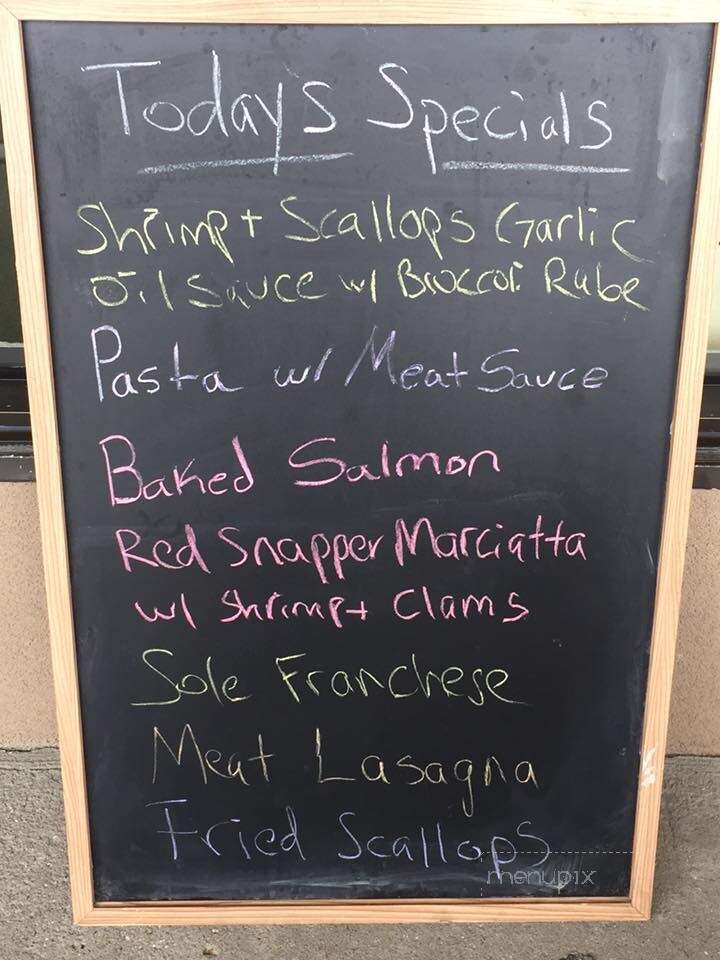 Todays Specials
Shrimp + Scallops Garlic
Oil Sauce w/ Broccoli Rabe
Pasta w/ Meat Sauce
Baked Salmon
Red Snapper Marciatta
w/ Shrimp + Clams
Sole Franchese
Meat Lasagna
Fried Scallops
menupix